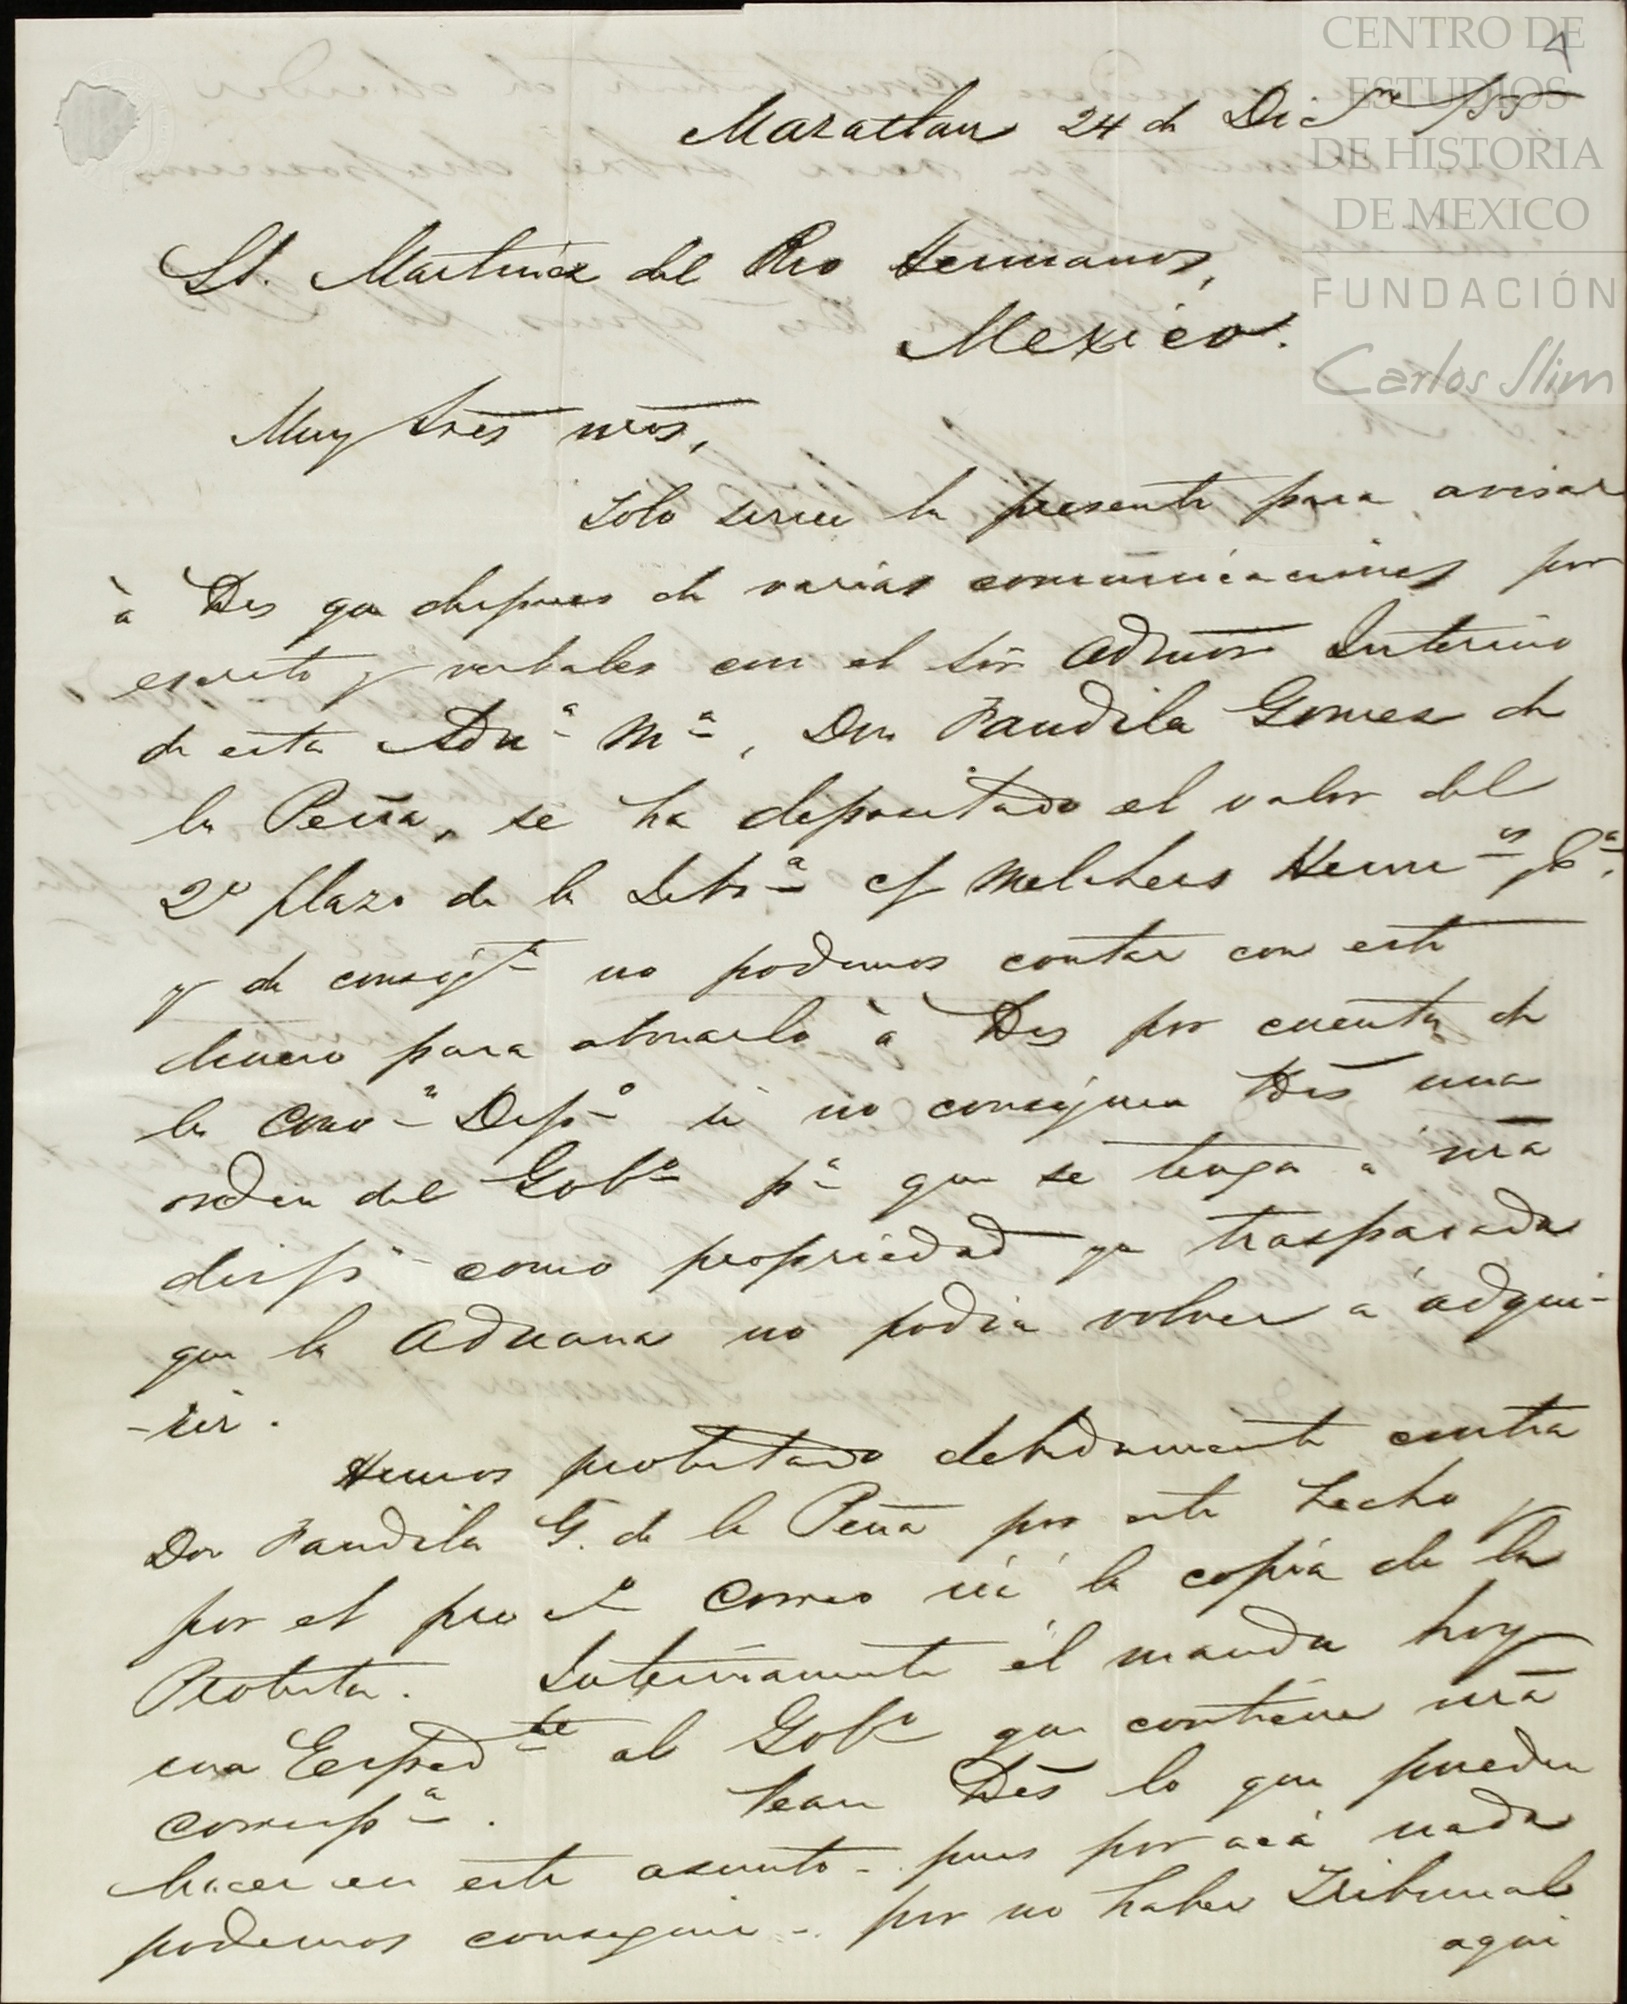 4
CENTRO DE
ESTUDIOS
DE HISTORIA
DE MEXICO
FUNDACIÓN
Carlos Slim
Mazatlan 24 de Dicre /55
Ss. Martinez del Rio Hermanos,
Mexico.
Muy Sres nros,
Solo sirve la presente para avisar
à Uds que despues de varias comunicaciones por
escrito y verbales con el Sõr Admõr Interino
de esta Adna Ma, Don Fandila Gomez de
la Peña, se ha depositado el valor del
2o plazo de la Libra c/ Melchers Hermos y Ca,
y de consigte no podemos contar con este
dinero para abonarlo à Uds por cuenta de
la Conv.n Despo si no consiguen Uds una
orden del Gobo pa que se tenga a nra
dispn como propriedad ya traspasada
que la Aduana no podia volver a adqui-
-rir.
Hemos protestado debidamente contra
Don Fandila G. de la Peña por este hecho y
por el proxo Correo irá la copia de la
Protesta. Interinamente él manda hoy
un Expedte al Gobo que contiene nra
correspa. Vean Uds lo que pueden
hacer en este asunto - pues por acá nada
podemos conseguir - por no haber Tribunal
aqui